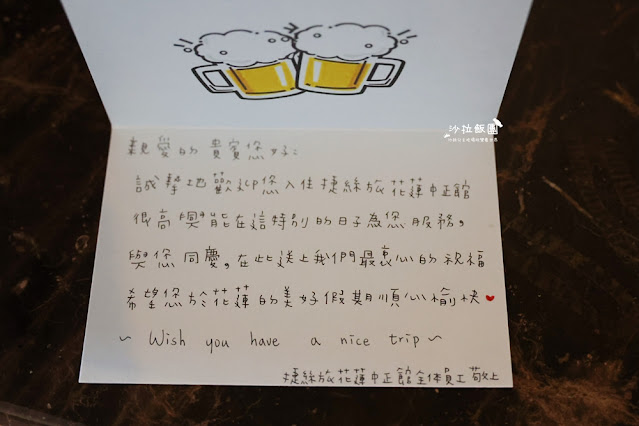 沙拉飯團
親愛的 貴賓您好：
誠摯地歡迎您入住捷絲旅花蓮中正館
很高興能在這特別的日子為您服務，
與您同慶。在此送上我們最衷心的祝福
希望您於花蓮的美好假期順心愉快
~ Wish you have a nice trip ~
捷絲旅花蓮中正館全体員工 敬上